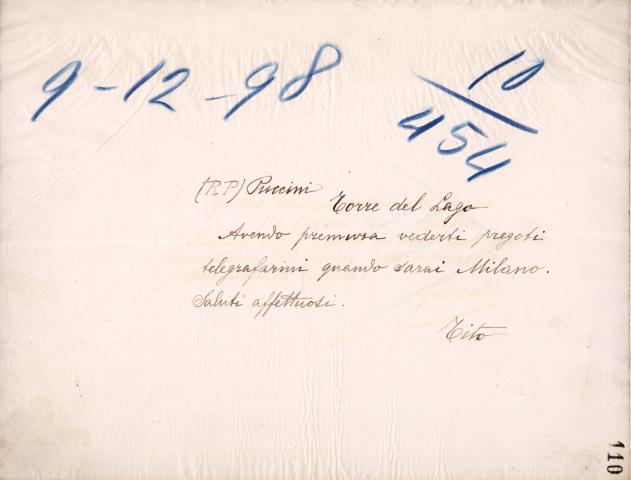 9-12-98
10
454
(R.P) Puccini
Torre del Lago
Avendo premura vederti pregoti
telegrafarmi quando sarai Milano.
Saluti affettuosi.
Tito
110